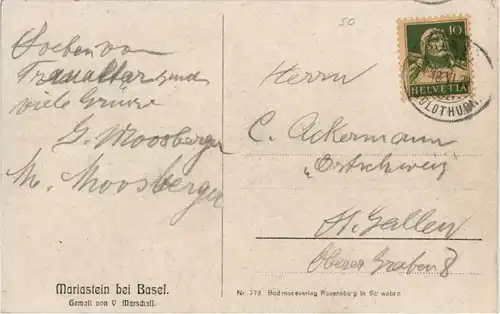 Soeben vom
Traualtar sind
viele Grüsse
G. Moosberger
M. Moosberger
Mariastein bei Basel.
Gemalt von V. Marschall.
50
10
HELVETIA
18. VI. 2
SOLOTHURN
Herrn
C. Ackermann
"Ostschweiz"
St. Gallen
Oberer Graben 8
Nr. 778 Bodenseeverlag Ravensburg in Schwaben